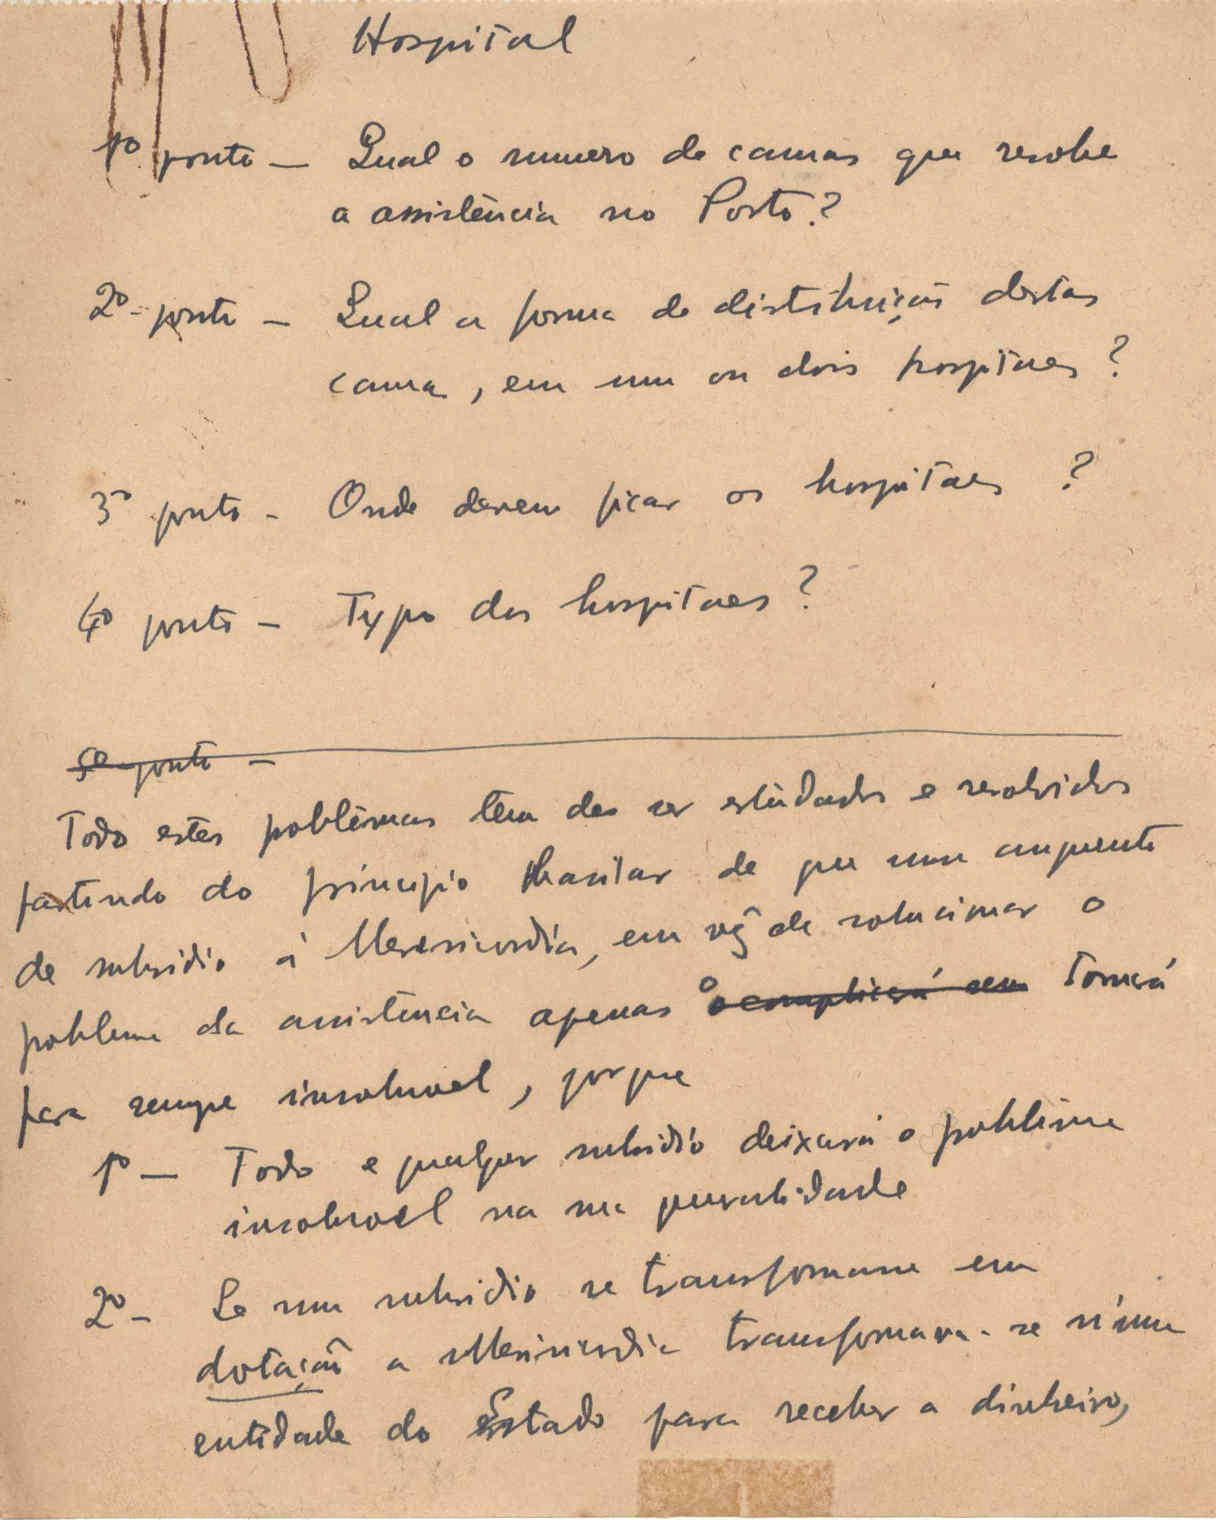 Hospital
1º ponto — Qual o numero de camas que resolve
a assistência no Porto?
2º - ponto — Qual a forma de distribuição destas
cama, em um ou dois hospitaes?
3º ponto - Onde devem ficar os hospitaes ?
4º ponto — Typo dos hospitaes?
5º ponto —
Todo estes problêmas têm de ser estudados e resolvidos
partindo do principio de que um augmento
de subsidio á Mesiricordia, em vez de solucionar o
problema da assistencia apenas o complicará sem tornará
para sempre insoluvel, porque
1º — Todo e qualquer subsidio deixará o problema
insoluvel na sua generalidade
2º - Se um subsidio se transformasse em
dotação a Mesiricordia transformava-se n'uma
entidade do Estado para receber o dinheiro,